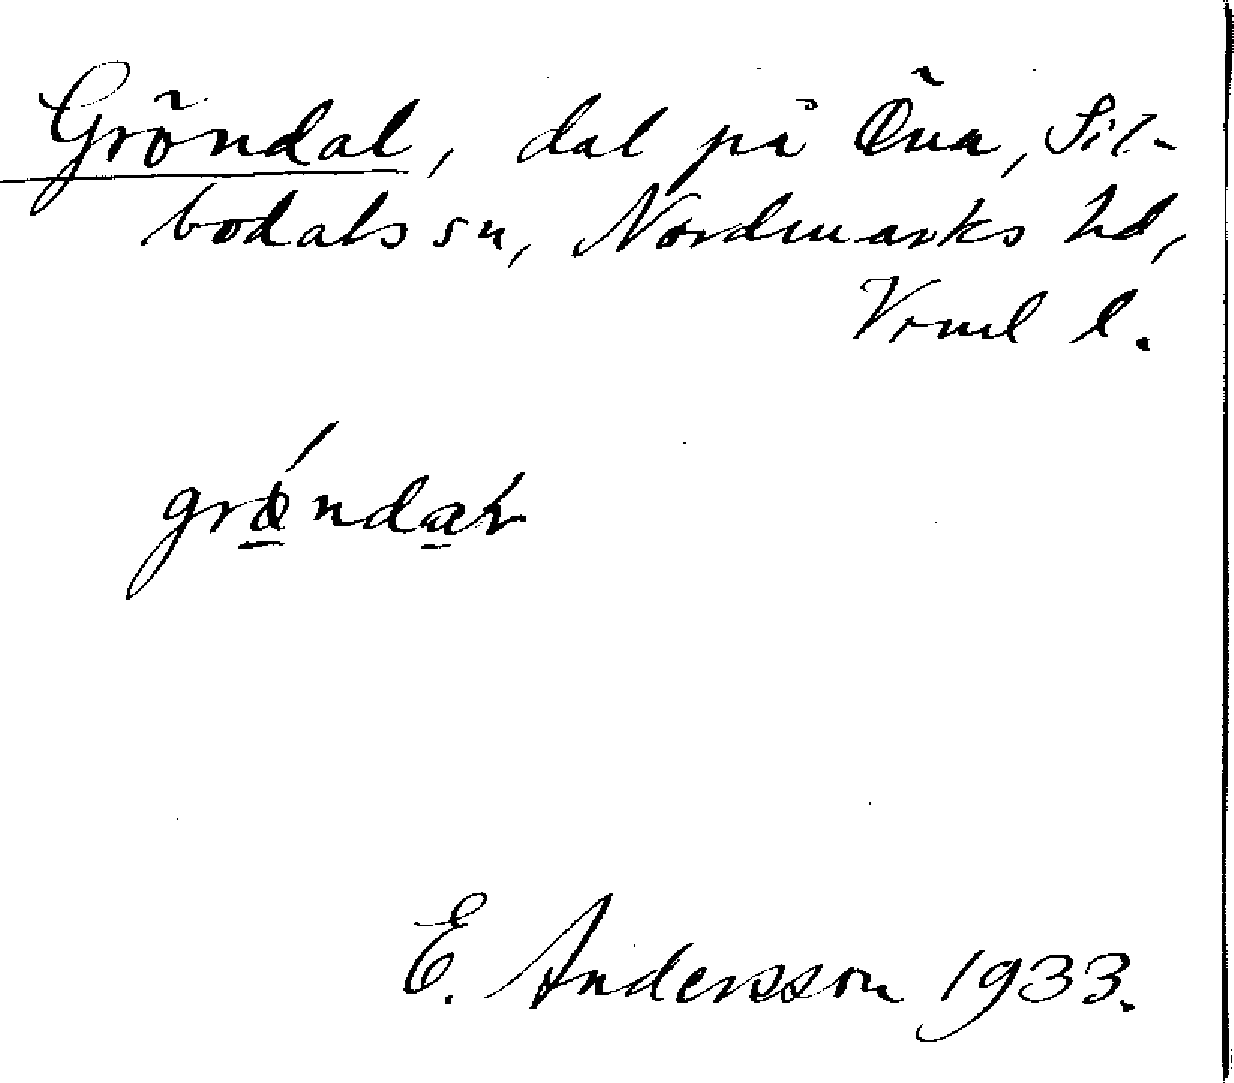 Gröndal, dal på Öna, Sil-
bodals sn, Nordmarks hd,
Vrml l.
E. Andersson 1933.